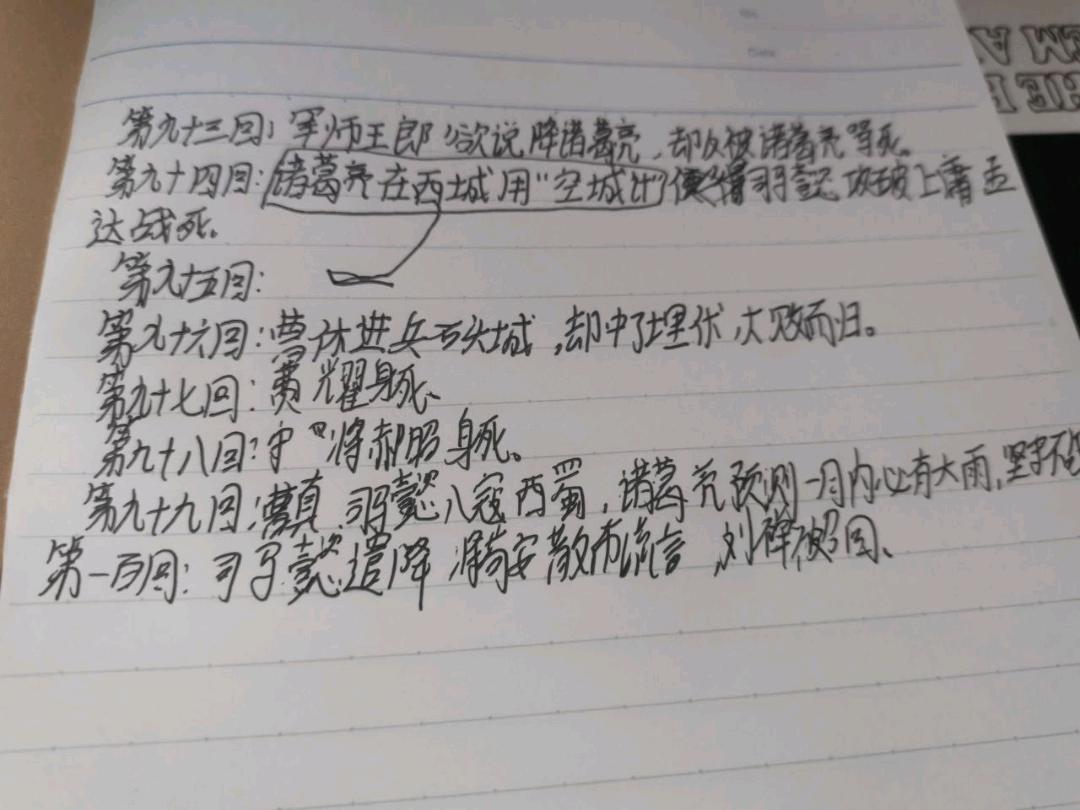 第九十三回：军师王郎欲说降诸葛亮，却反被诸葛亮骂死。
第九十四回：诸葛亮在西城用“空城计”使得司马懿攻破上庸孟
达战死。
第九十五回：
第九十六回：曹休进兵石头城，却中了埋伏，大败而归。
第九十七回：费耀身死、
第九十八回：中将郝昭身死。
第九十九回：曹真、司马懿入寇西蜀，诸葛亮预测一月内必有大雨，坚守不
第一百回：司马懿遣降将苟安散布流言，刘禅被召回、
HE